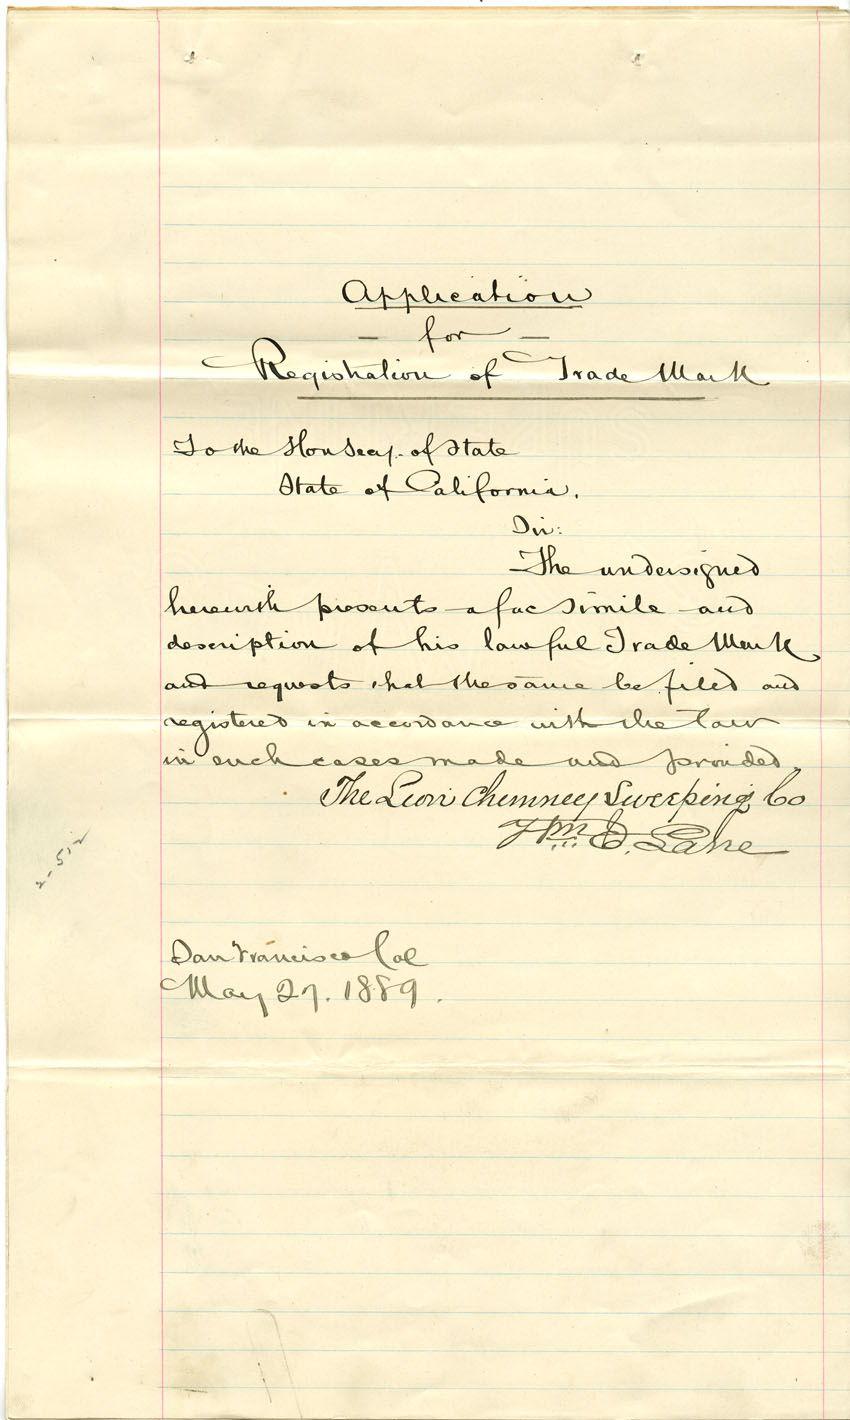 Application
— for —
Registration of Trade Mark
To the Hon Secy. of State
State of California.
Sir:
The undersigned
herewith presents a fac simile and
description of his lawful Trade Mark
and requests that the same be filed and
registered in accordance with the law
in such cases made and provided.
The Lion Chimney Sweeping Co
Wm E. Lane
2-5,2
San Francisco Cal
May 27. 1889.